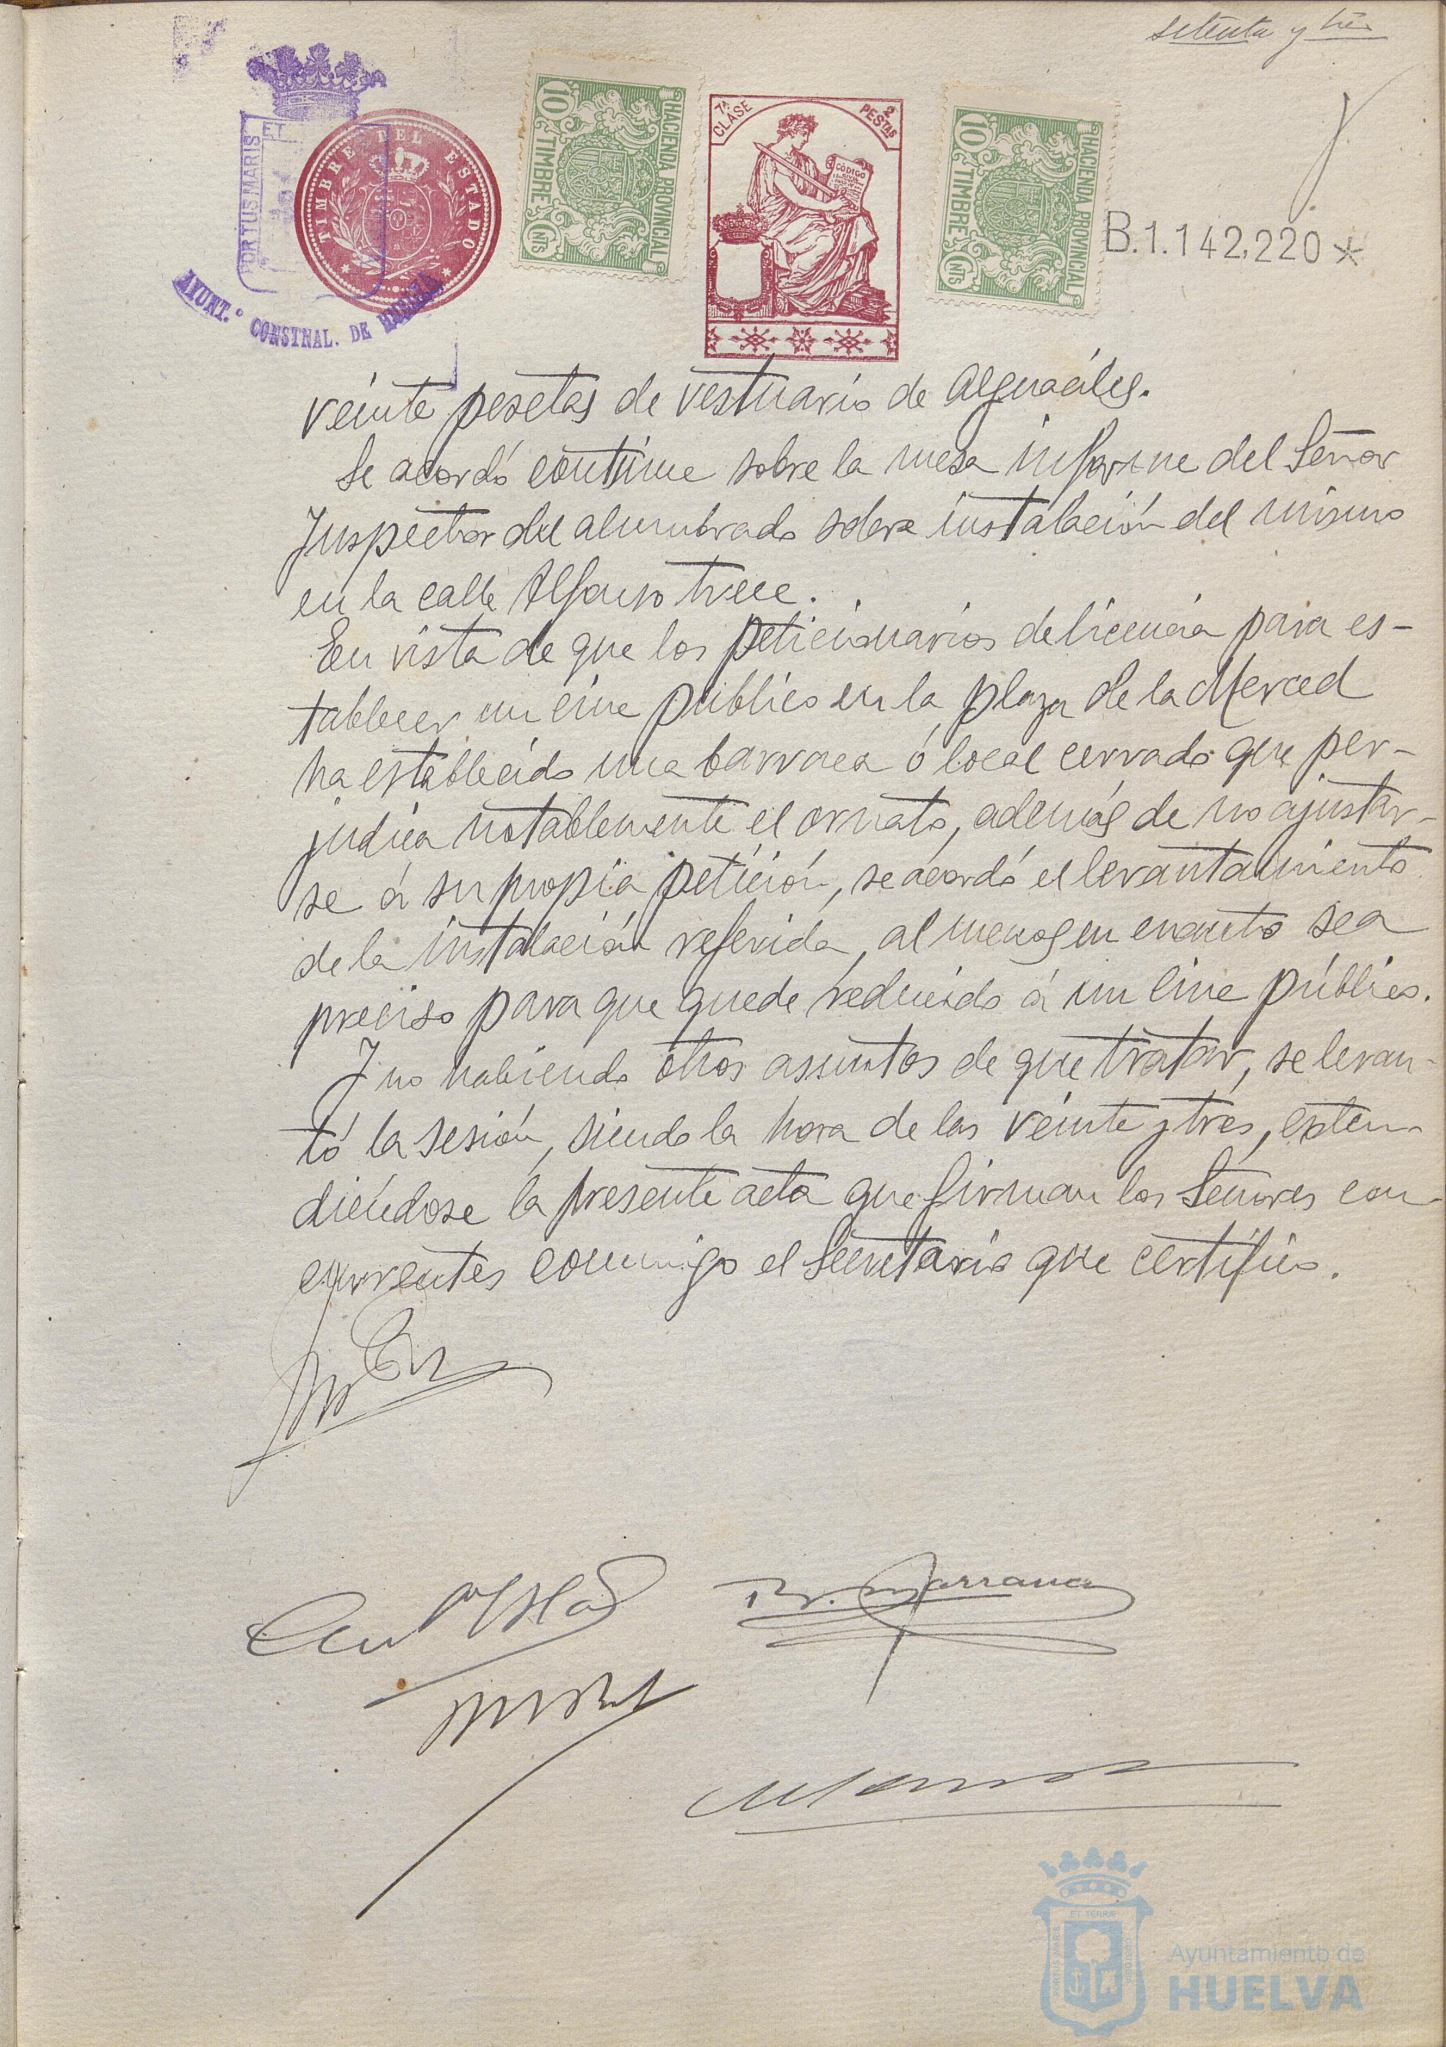 setenta y tres
PORTUS MARIS ET
AYUNT.º CONSTNAL. DE HUELVA
TIMBRE DEL ESTADO
10 CNTS
TIMBRE
HACIENDA PROVINCIAL
7ª CLASE
2 PESTAS
CÓDIGO
CIVIL
10 CNTS
TIMBRE
HACIENDA PROVINCIAL
B.1.142,220 *
veinte pesetas de vestuario de Alguaciles.
Se acordó continue sobre la mesa informe del Señor
Inspector del alumbrado sobre instalación del mismo
en la calle Alfonso trece.
En vista de que los peticionarios de licencia para es-
tablecer un cine público en la plaza de la Merced
ha establecido una barraca ó local cerrado que per-
judica notablemente el ornato, además de no ajustar-
se á su propia petición, se acordó el levantamiento
de la instalación referida, al menos en cuanto sea
preciso para que quede reducido á un cine público.
Y no habiendo otros asuntos de que tratar, se levan-
tó la sesión, siendo la hora de las veinte y tres, exten-
diéndose la presente acta que firman los Señores con-
currentes conmigo el Secretario que certifico.
ET TERRÆ
PORTUS MARIS
CUSTODIA
Ayuntamiento de
HUELVA